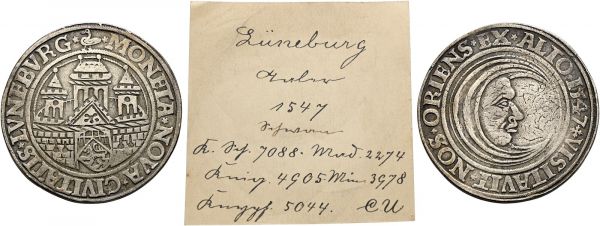 MONETA · NOVA · CIVITATIS · LVNEBVRG ·
Lüneburg
Taler
1547
Schwan
K. Sch. 7088. Mad. 2274
4905 Min. 3978
5044. CU
VISITAVIT · NOS · ORIENS · EX · ALTO · 1547